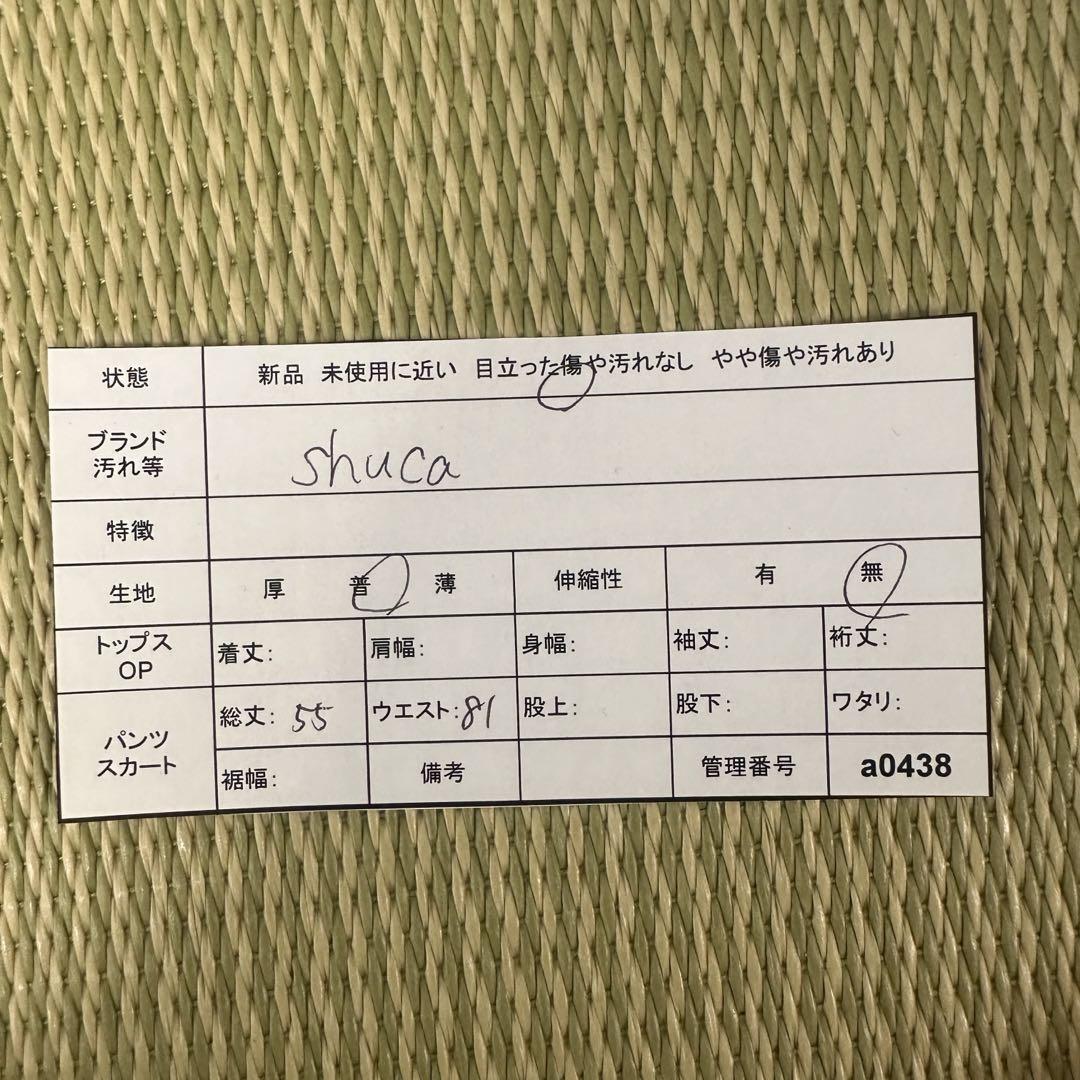 状態 新品 未使用に近い 目立った傷や汚れなし やや傷や汚れあり
ブランド
汚れ等
shuca
特徴
生地 厚 普 薄 伸縮性 有 無
トップス
OP
着丈: 肩幅: 身幅: 袖丈: 裄丈:
パンツ
スカート
総丈: 55 ウエスト: 81 股上: 股下: ワタリ:
裾幅: 備考 管理番号 a0438